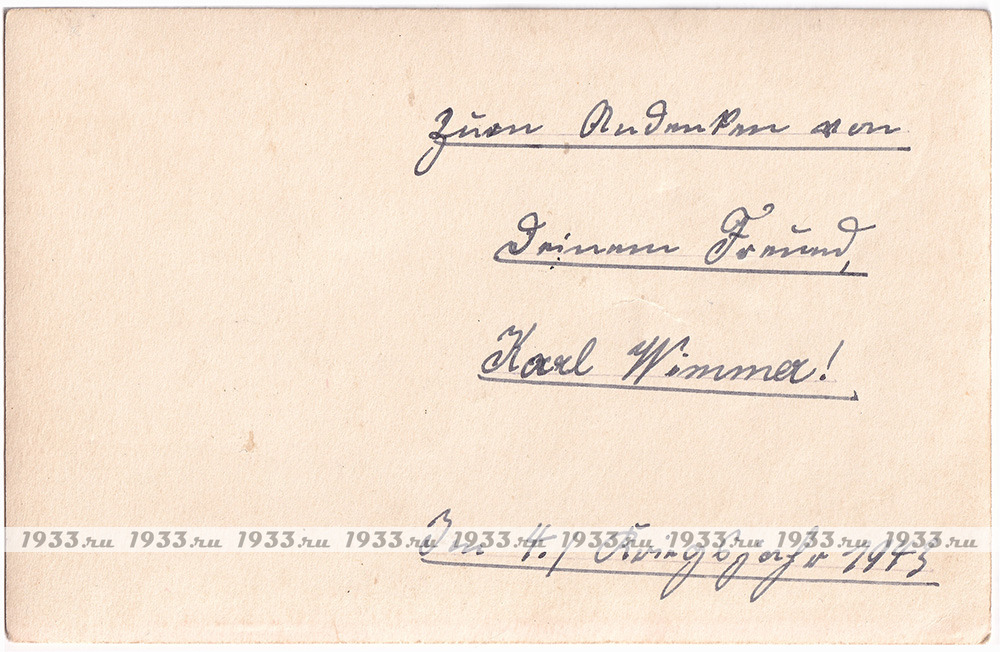 Zum Andenken von
Deinem Freund,
Karl Wimmer!
1933.ru 1933.ru 1933.ru 1933.ru 1933.ru 1933.ru 1933.ru 1933.ru 1933.ru
Im 4. Kriegsjahr 1943